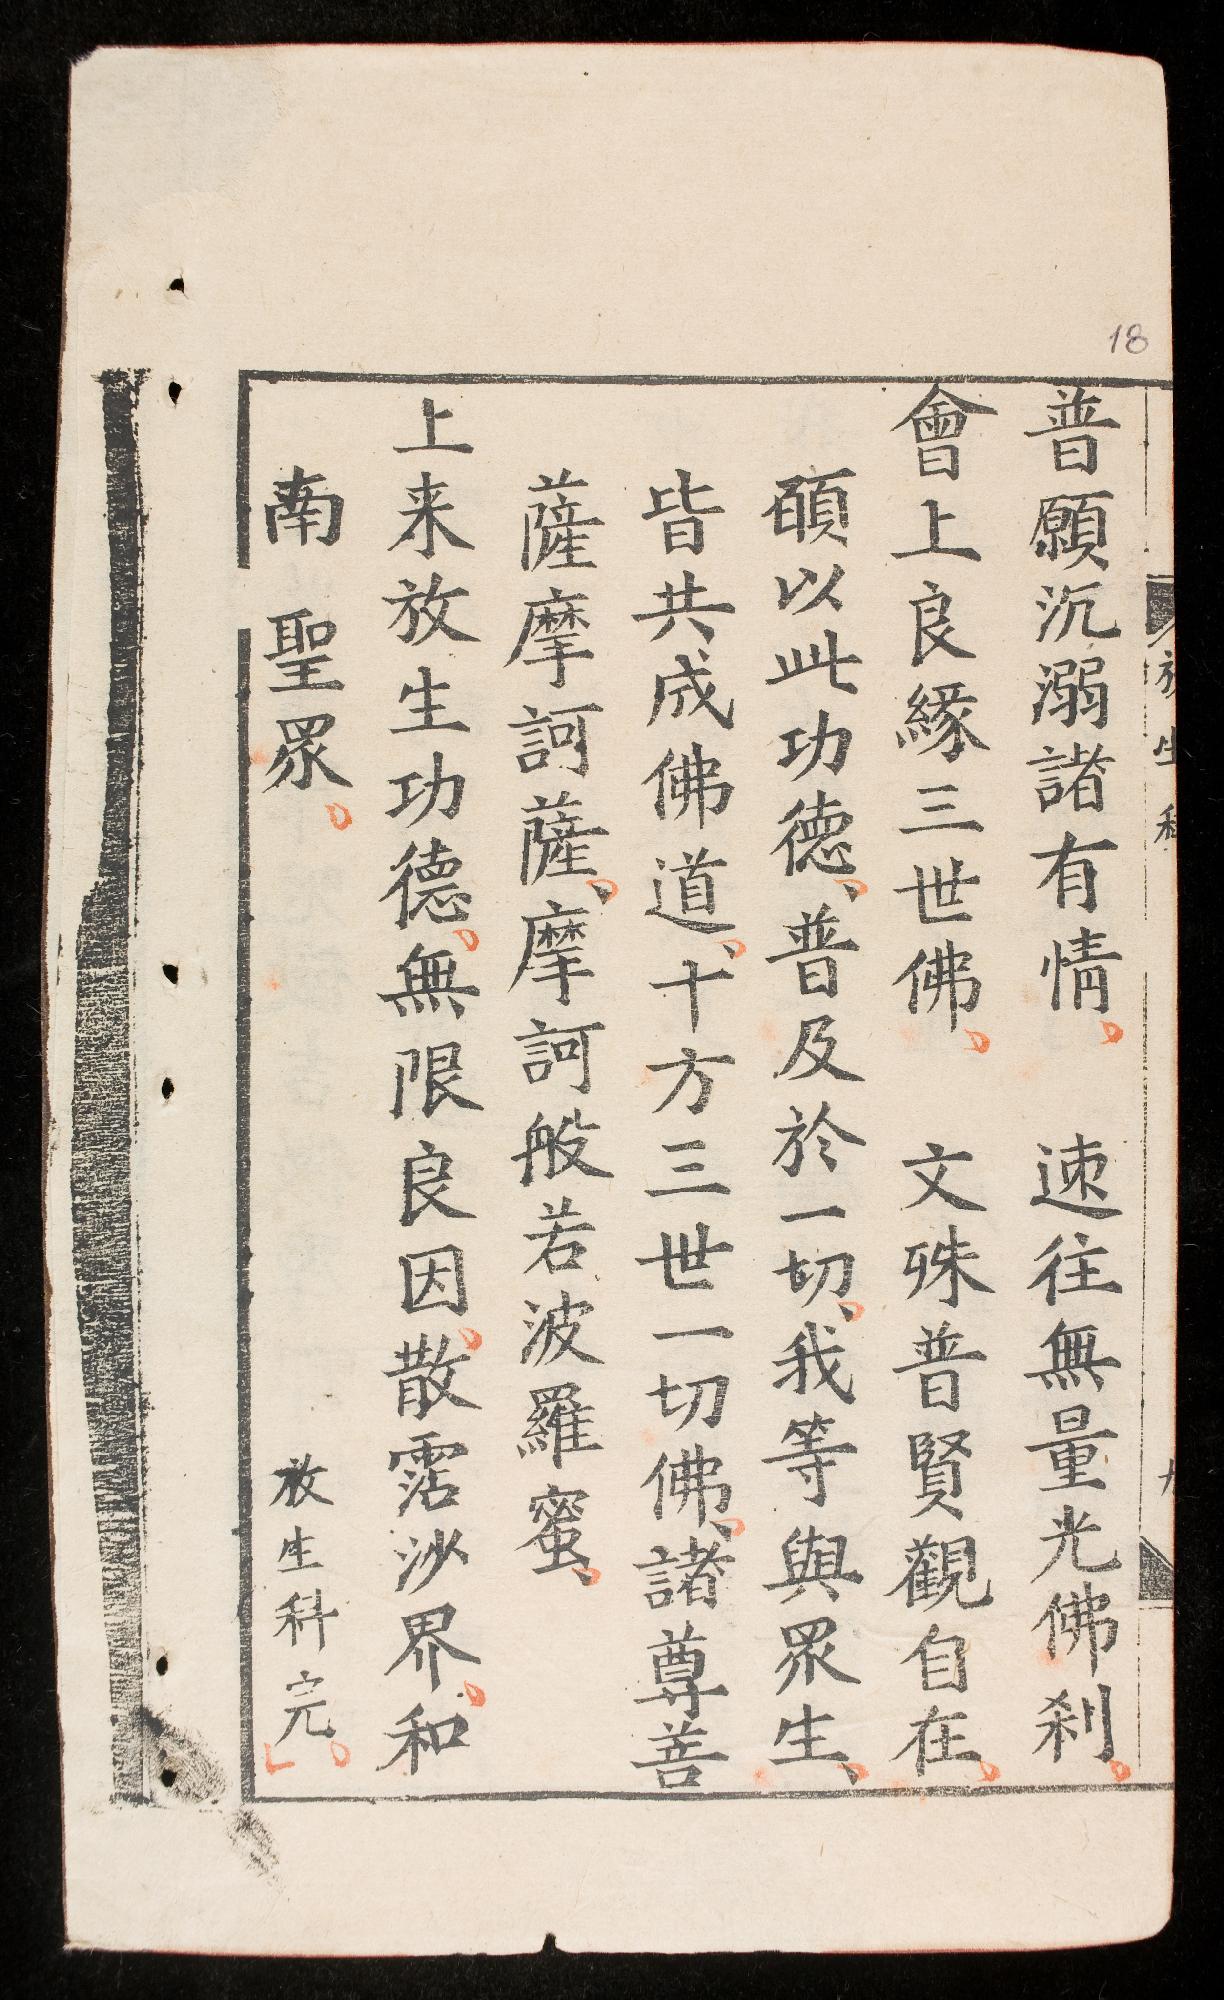 18
普願沉溺諸有情。 速往無量光佛刹。
會上良緣三世佛。 文殊普賢觀自在。
頋以此功德、普及於一切、我等與眾生、
皆共成佛道、十方三世一切佛、諸尊菩
薩摩訶薩、摩訶般若波羅蜜、
上来放生功德、無限良因、散霑沙界、和
南 聖眾。 放生科完。
放生科